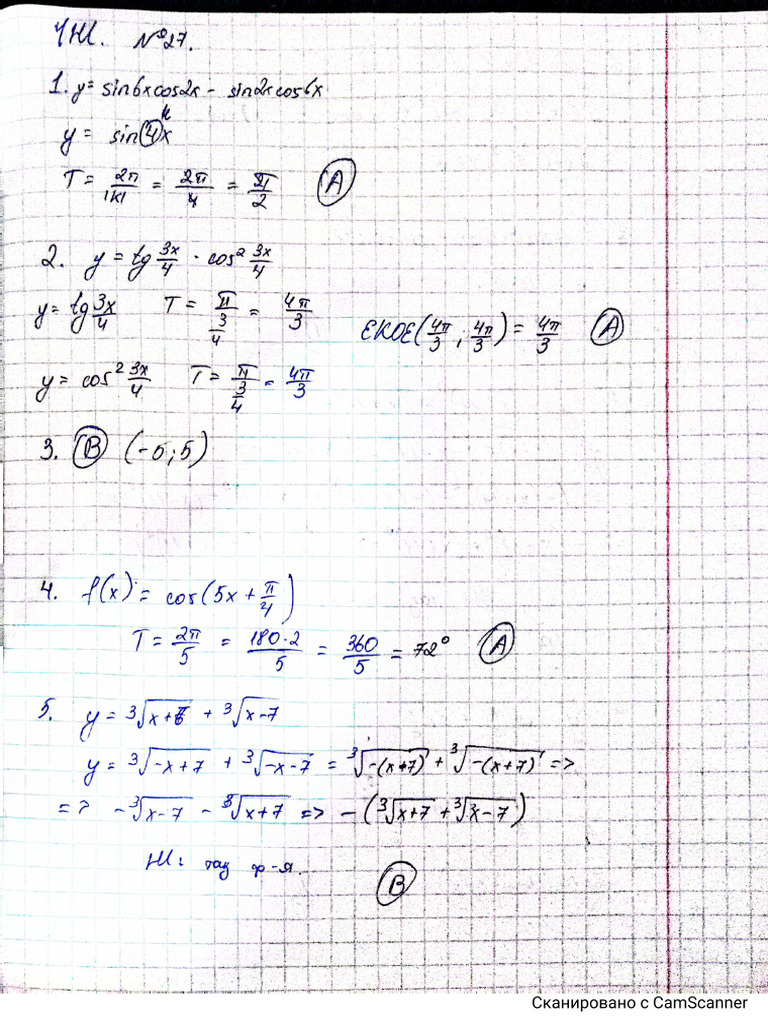 ҮЖ. №27.
1. y = sin6xcos2x - sin2xcos6x
k
y = sin4x
T = 2π/|k| = 2π/4 = π/2 A
2. y = tg 3x/4 · cos² 3x/4
y = tg 3x/4 T = π/(3/4) = 4π/3 ЕКОЕ(4π/3 ; 4π/3) = 4π/3 A
y = cos² 3x/4 T = π/(3/4) = 4π/3
3. B (-5;5)
4. f(x) = cos(5x + π/4)
T = 2π/5 = 180·2/5 = 360/5 = 72° A
5. y = ³√x+ + ³√x-7
y = ³√-x+7 + ³√-x-7 = ³√-(x+7) + ³√-(x+7) =>
=> -³√x-7 - ³√x+7 => -(³√x+7 + ³√x-7)
Ж: тақ ф-я.
B
Сканировано с CamScanner